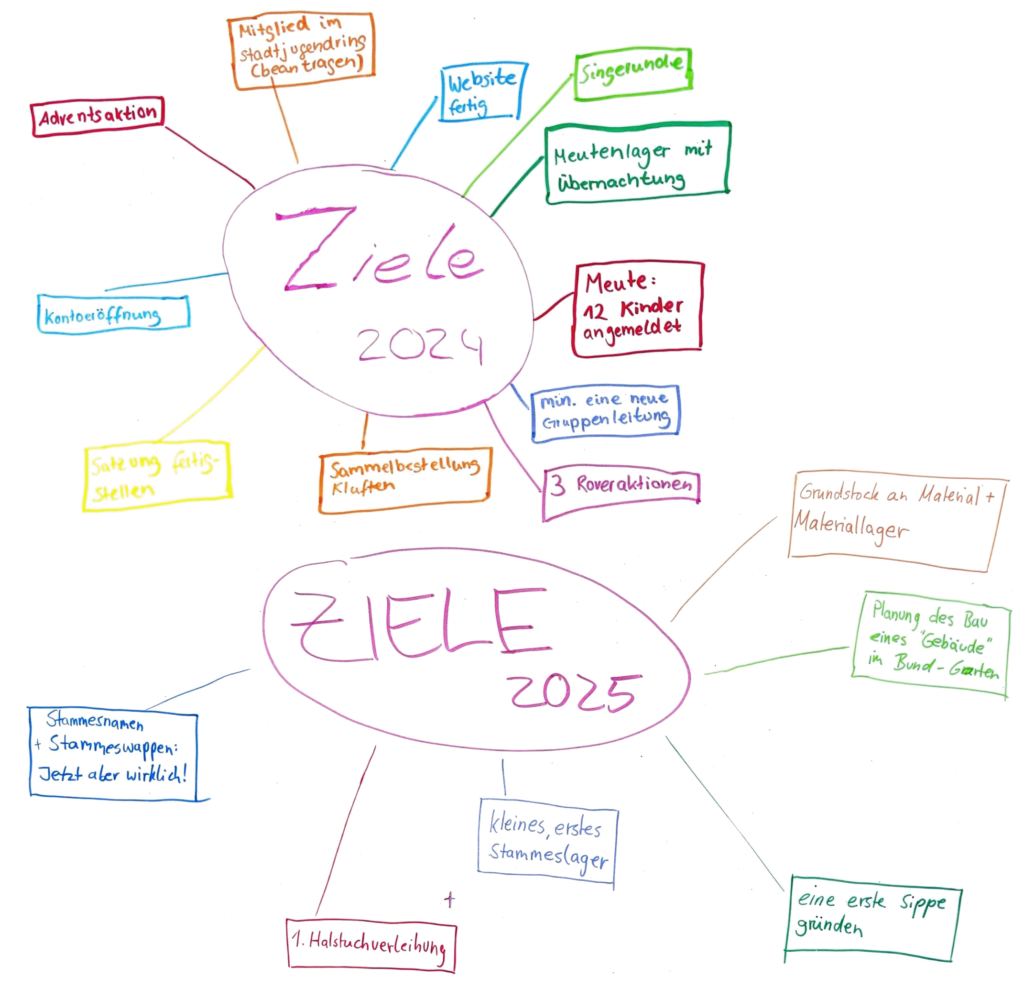 Mitglied im
stadtjugendring
(beantragen)
Website
fertig
Singerunde
Adventsaktion
Meutenlager mit
Übernachtung
Ziele
2024
Meute:
12 Kinder
angemeldet
Kontoeröffnung
min. eine neue
Gruppenleitung
Satzung fertig-
stellen
Sammelbestellung
Kluften
3 Roveraktionen
Grundstock an Material +
Materiallager
ZIELE
2025
Planung des Bau
eines "Gebäude"
im Bund-Garten
Stammesnamen
+ Stammeswappen:
Jetzt aber wirklich!
kleines, erstes
Stammeslager
+
1. Halstuchverleihung
eine erste Sippe
gründen